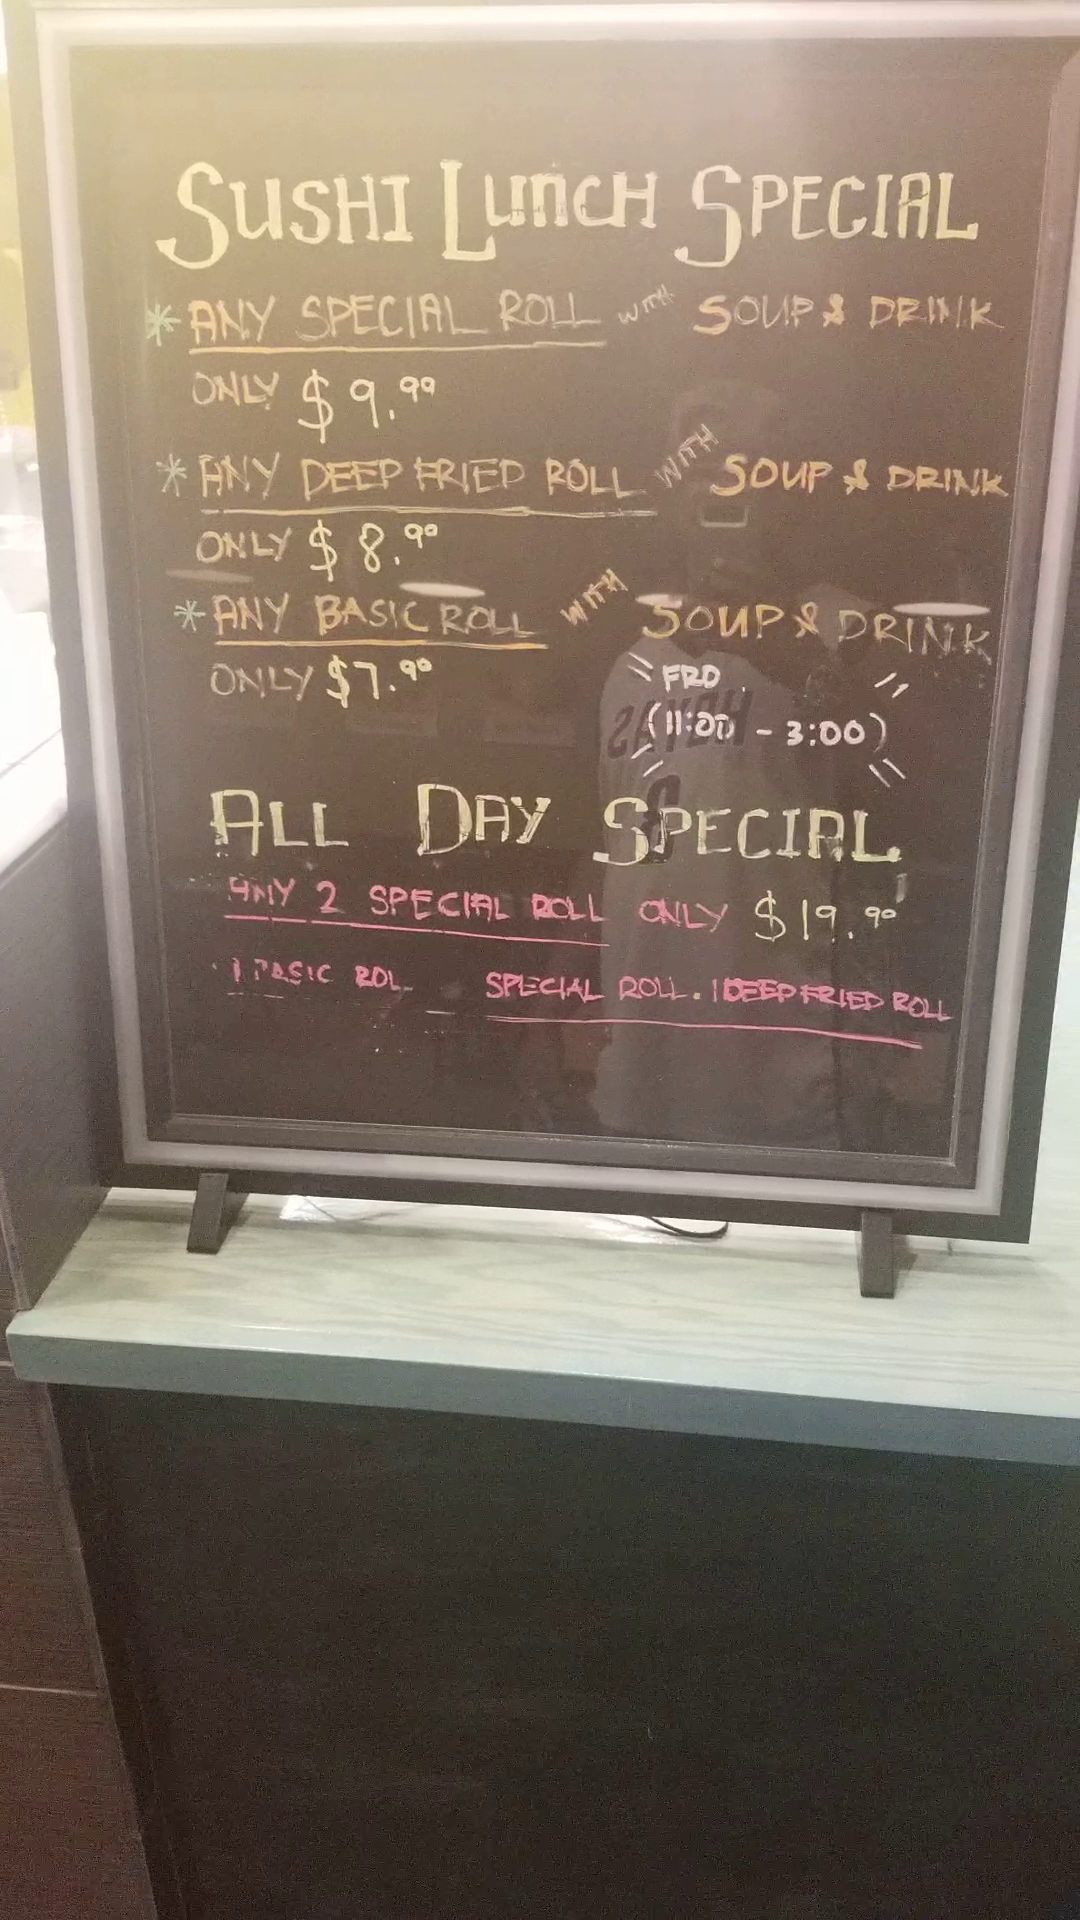 SUSHI LUNCH SPECIAL
* ANY SPECIAL ROLL WITH SOUP & DRINK
ONLY $9.99
* ANY DEEP FRIED ROLL WITH SOUP & DRINK
ONLY $8.99
* ANY BASIC ROLL WITH SOUP & DRINK
ONLY $7.99
(11:00 - 3:00)
ALL DAY SPECIAL
ANY 2 SPECIAL ROLL ONLY $19.99
SPECIAL ROLL. 1 DEEP FRIED ROLL